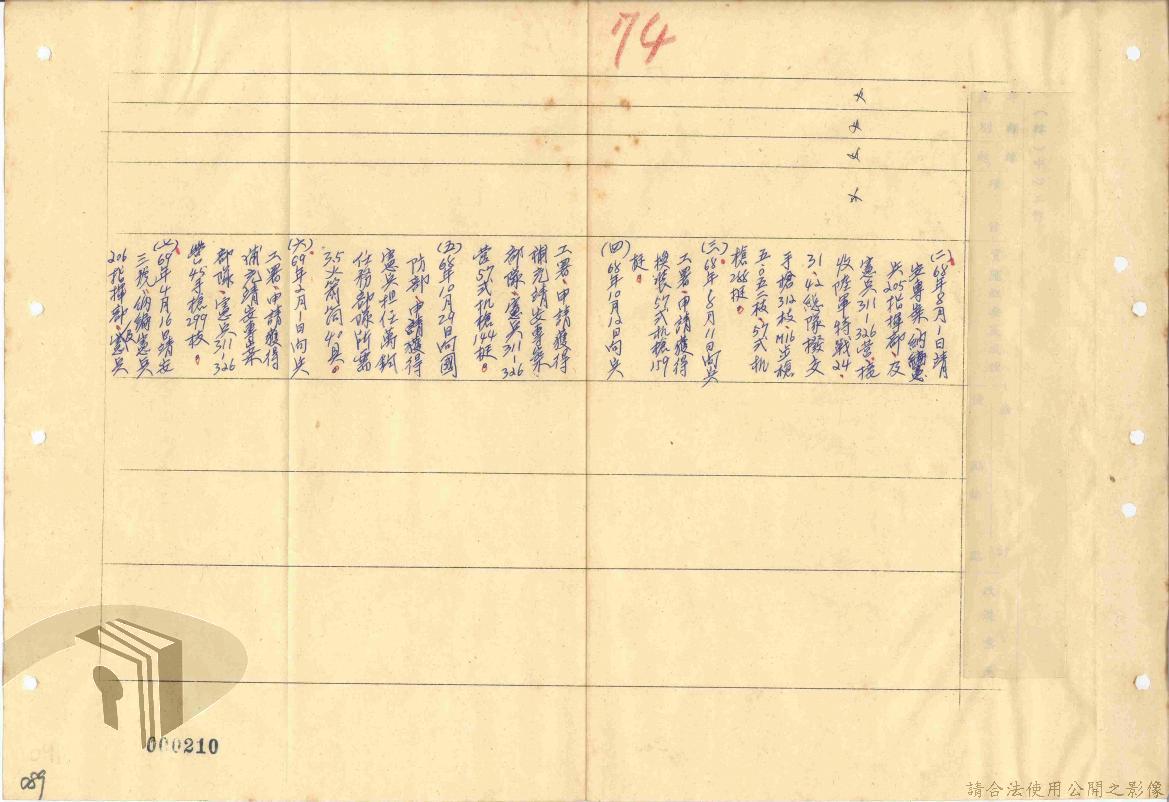 74
(二)68年8月1日靖
安專案、納編憲
兵205指揮部、及
憲兵311-326營、接
收陸軍特戰24、
31、42總隊撥交
手槍312枝、M16步槍
五、0五二枝、57式机
槍288挺。
(三)68年8月11日向兵
工署、申請獲得
換裝57式机槍159
挺。
(四)68年10月12日向兵
工署、申請獲得
補充靖安專案
部隊、憲兵311-326
營57式机槍144挺。
(五)68年10月29日向國
防部、申請獲得
憲兵担任萬鈞
任務部隊所需
3.5火箭筒40具。
(六)69年2月1日向兵
工署、申請獲得
補充靖安專案
部隊、憲兵311-326
營45手槍299枝。
(七)69年4月16日靖安
三號、納編憲兵
206指揮部、憲兵
000210
089
請合法使用公開之影像